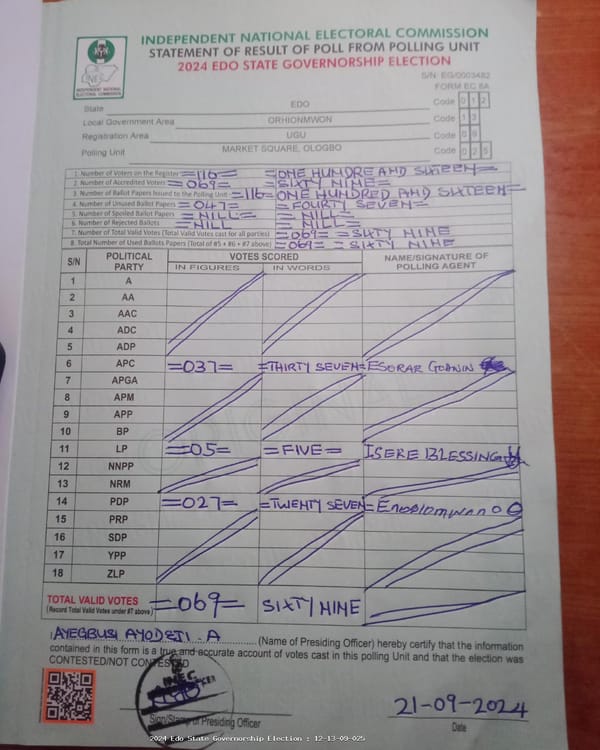 INDEPENDENT NATIONAL ELECTORAL COMMISSION
STATEMENT OF RESULT OF POLL FROM POLLING UNIT
2024 EDO STATE GOVERNORSHIP ELECTION
INEC
INDEPENDENT NATIONAL ELECTORAL COMMISSION
S/N: EG/0003482
FORM EC 8A
State EDO Code 012
Local Government Area ORHIONMWON Code 13
Registration Area UGU Code 09
Polling Unit MARKET SQUARE, OLOGBO Code 025
1. Number of Voters on the Register =116= =ONE HUNDRE AND SIXTEEN=
2. Number of Accredited Voters =069= =SIXTY NINE=
3. Number of Ballot Papers Issued to the Polling Unit =116= ONE HUNDRED AND SIXTEEN=
4. Number of Unused Ballot Papers =047= =FOURTY SEVEN=
5. Number of Spoiled Ballot Papers =NILL= =NILL=
6. Number of Rejected Ballots =NILL= =NILL=
7. Number of Total Valid Votes (Total Valid Votes cast for all parties) =069= =SIXTY NINE
8. Total Number of Used Ballots Papers (Total of #5 + #6 + #7 above) =069= =SIXTY NINE
S/N POLITICAL PARTY VOTES SCORED NAME/SIGNATURE OF POLLING AGENT
IN FIGURES IN WORDS
1 A
2 AA
3 AAC
4 ADC
5 ADP
6 APC =037= =THIRTY SEVEN= ESORAR GODWIN
7 APGA
8 APM
9 APP
10 BP
11 LP =05= =FIVE= ISERE BLESSING
12 NNPP
13 NRM
14 PDP =027= =TWENTY SEVEN=
15 PRP
16 SDP
17 YPP
18 ZLP
TOTAL VALID VOTES =069= SIXTY NINE
(Record Total Valid Votes under #7 above)
AYEGBUSI AYODEJI - A (Name of Presiding Officer) hereby certify that the information
contained in this form is a true and accurate account of votes cast in this polling Unit and that the election was
CONTESTED/NOT CONTESTED
INEC
21-09-2024
Sign/Stamp of Presiding Officer Date
2024 Edo State Governorship Election : 12-13-09-025